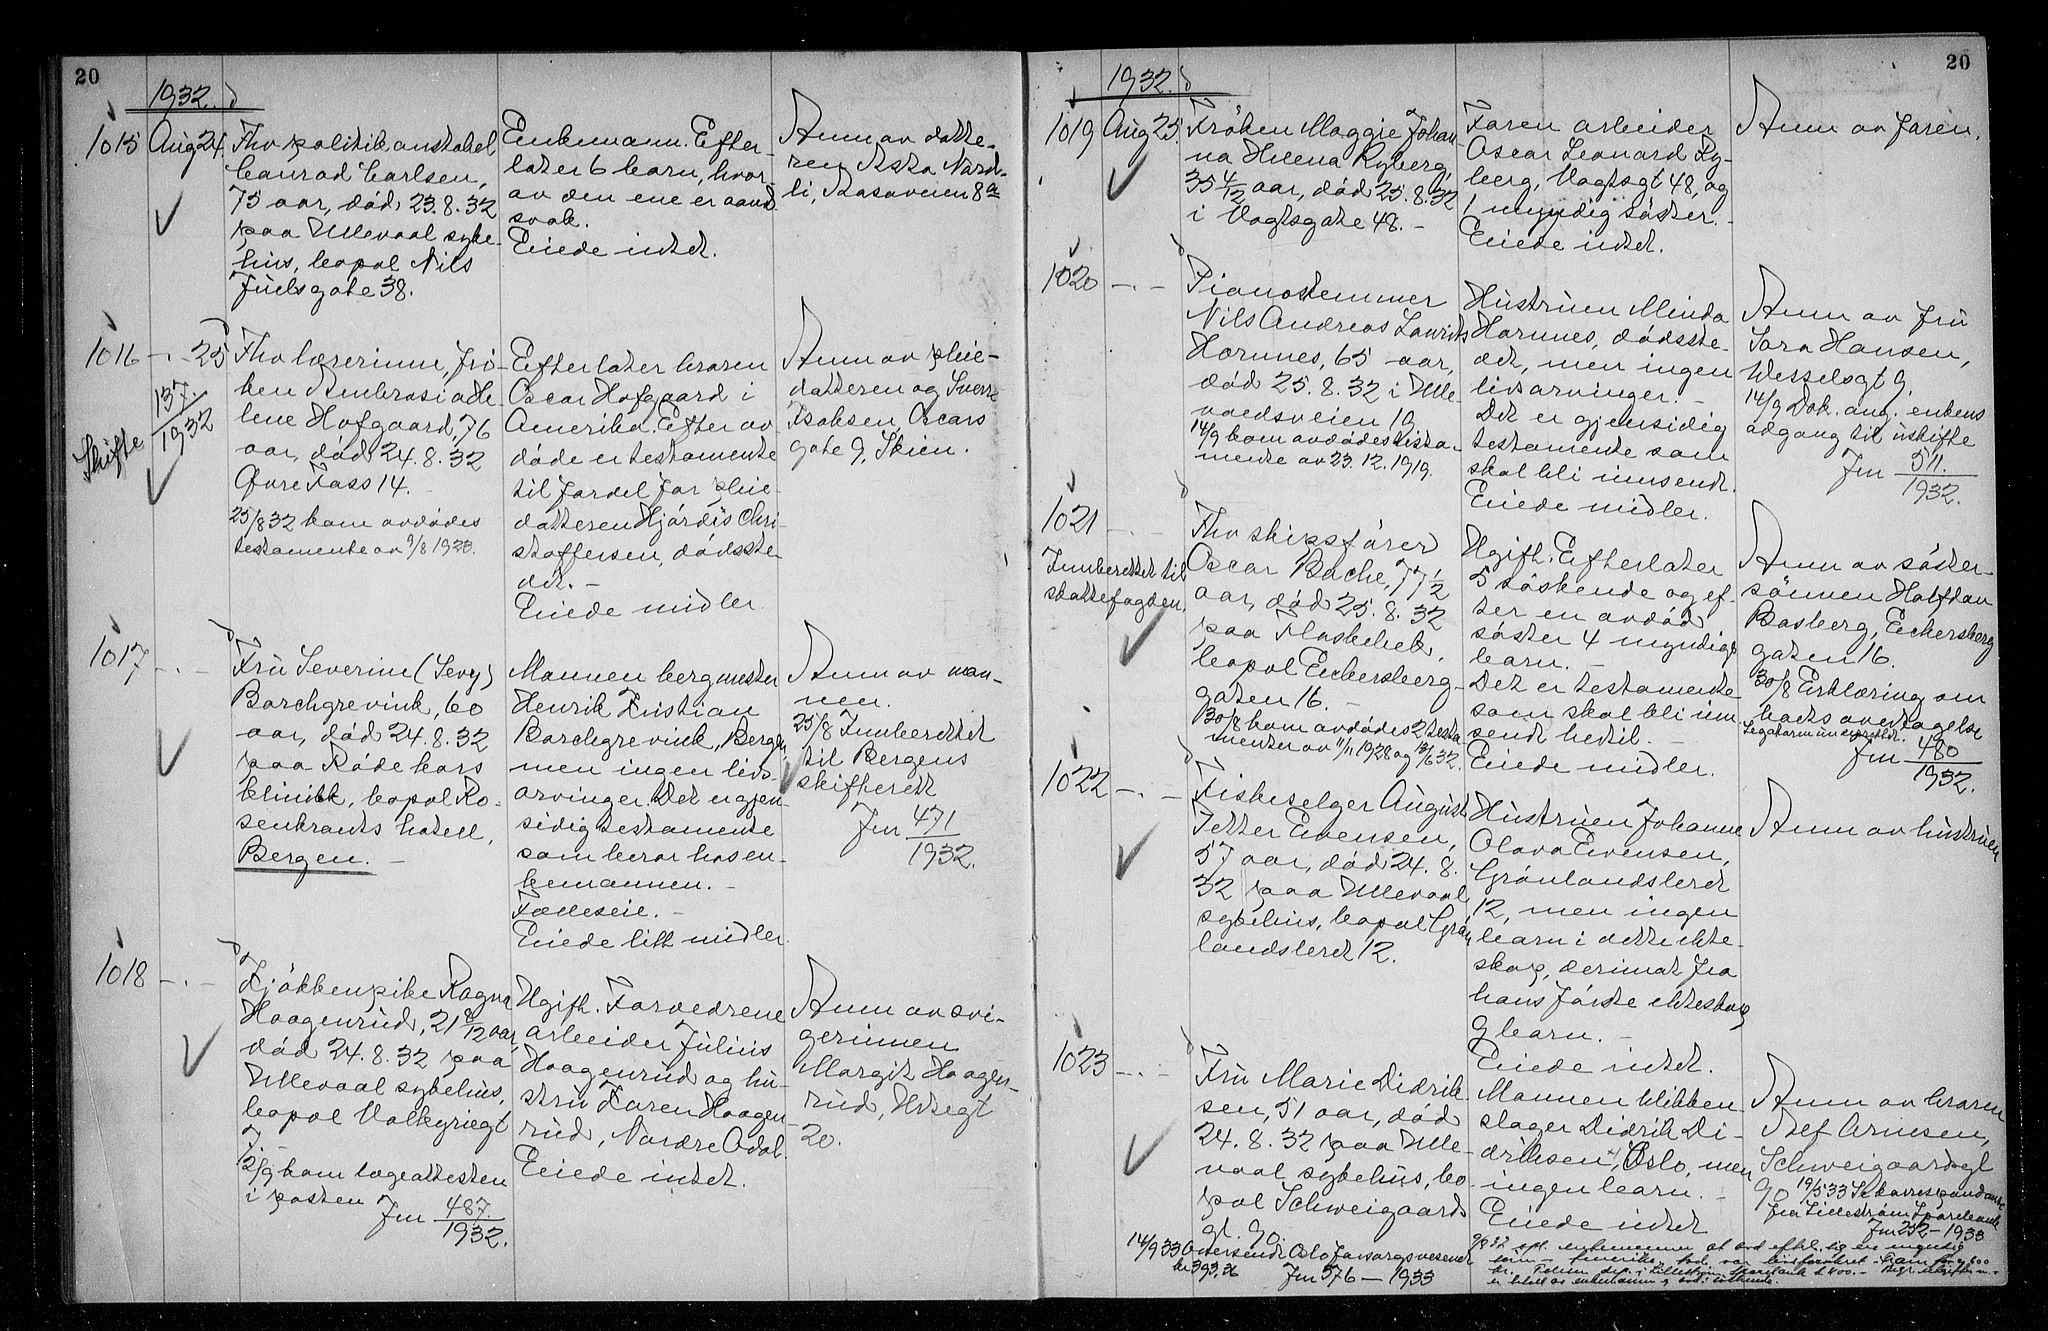 20
1932.
1015 Aug 24.
Fhv politikonstabel
Conrad Carlsen,
75 aar, död 23.8.32
paa Ullevaal syke-
hus, bopæl Nils
Juelsgate 38.
Enkemann. Efter-
later 6 barn, hvor-
av den ene er aand-
svak.
Eiede intet.
Anm av datte-
ren Asta Nord-
li, Aasaveien 8a
1016 -.- 25
137.
1932
Skifte
Fhv lærerinne, frö-
ken Ambrosia He-
lene Hofgaard, 76
aar, död 24.8.32
Övre Foss 14.
25/8 32 kom avdödes
testamente av 9/8 1923.
Efterlater broren
Oscar Hofgaard i
Amerika. Efter av-
döde er testamente
til fordel for pleie-
datteren Hjördis Chri-
stoffersen, dödsste-
det. -
Eiede midler.
Anm av pleie-
datteren og Sverre
Isaksen, Oscars
gate 9, Skien.
1017 -.-
Fru Severine (Sevy)
Borchgrevink, 60
aar, död 24.8.32
paa Röde kors
klinikk, bopæl Ro-
senkrants hotell,
Bergen. -
Mannen bergmester
Henrik Kristian
Borchgrevink, Bergen,
men ingen livs-
arvinger. Det er gjen-
sidig testamente
som beror hos en-
kemannen. -
Fælleseie. -
Eiede litt midler.
Anm av man-
nen.
25/8 Innberettet
til Bergens
skifterett
Jnr 471
1932.
1018 -.-
Kjökkenpike Ragna
Haagenrud, 21 8/12 aar,
död 24.8.32 paa
Ullevaal sykehus,
bopæl Valkyriegt
7. -
12/9 kom lægeattesten
i posten Jnr 487.
1932.
Ugift. Forældrene
arbeider Julius
Haagenrud og hu-
stru Karen Haagen-
rud, Nordre Odal.
Eiede intet.
Anm av svi-
gerinnen
Margit Haagen-
rud,
20.
20
1932.
1019 Aug 25.
Fröken Maggie Johan-
na Helena Ryberg,
35 4/12 aar, död 25.8.32
i Vogtsgate 48. -
Faren arbeider
Oscar Leonard Ry-
berg, Vogtsgt 48, og
1 myndig söster. -
Eiede intet.
Anm av faren.
1020 -.-
Pianostemmer
Nils Andreas Laurits
Hornnes, 65 aar,
död 25.8.32 i Ulle-
voldsveien 19
14/9 kom avdödes testa-
mente av 23.12.1919.
Hustruen Minda
Hornnes, dödsste-
det, men ingen
livsarvinger. -
Det er gjensidig
testamente som
skal bli innsendt.
Eiede midler.
Anm av fru
Sara Hansen,
Wesselsgt 9.
14/9 Dok. ang. enkens
adgang til uskifte
Jnr 511.
1932.
1021 -.-
Innberettet til
skattefogden.
Fhv skipsförer
Oscar Bache, 77 1/2
aar, död 25.8.32
paa Flaskebek,
bopæl Eckersberg-
gaten 16. -
30/8 kom avdödes 2 testa-
menter av 11/11 1928 og 13/6 32.
Ugift. Efterlater
5 söskende og ef-
ter en avdöd
söster 4 myndige
barn. -
Det er testamente
som skal bli inn-
sendt hertil. -
Eiede midler.
Anm av söster-
sönnen Halfdan
Basberg, Eckersberg-
gaten 16.
30/8 Erklæring om
boets overtagelse
Legatarne underrettet.
Jnr 480
1932.
1022 -.-
Fiskeselger August
Petter Evensen,
57 aar, död 24.8.
32 paa Ullevaal
sykehus, bopæl Grön-
landsleret 12.
Hustruen Johanne
Olava Evensen,
Grönlandsleret
12, men ingen
barn i dette ekte-
skap, derimot fra
hans förste ekteskap
9 barn. -
Eiede intet.
Anm av hustruen
1023 -.-
Fru Marie Didrik-
sen, 51 aar, död
24.8.32 paa Ulle-
vaal sykehus, bo-
pæl Schweigaards
gt. 90.
14/9 33 Oversendt Oslo forsorgsvesenet
kr 393,36 Jnr 576 - 1933
Mannen blikken-
slager Didrik Di-
driksen, Oslo, men
ingen barn. -
Eiede intet
Anm av broren
Alef Arnesen,
Schweigaardsgt
90
19/5 33 Se korrespondanse
fra Lilleström Sparebank
Jnr 252 - 1933